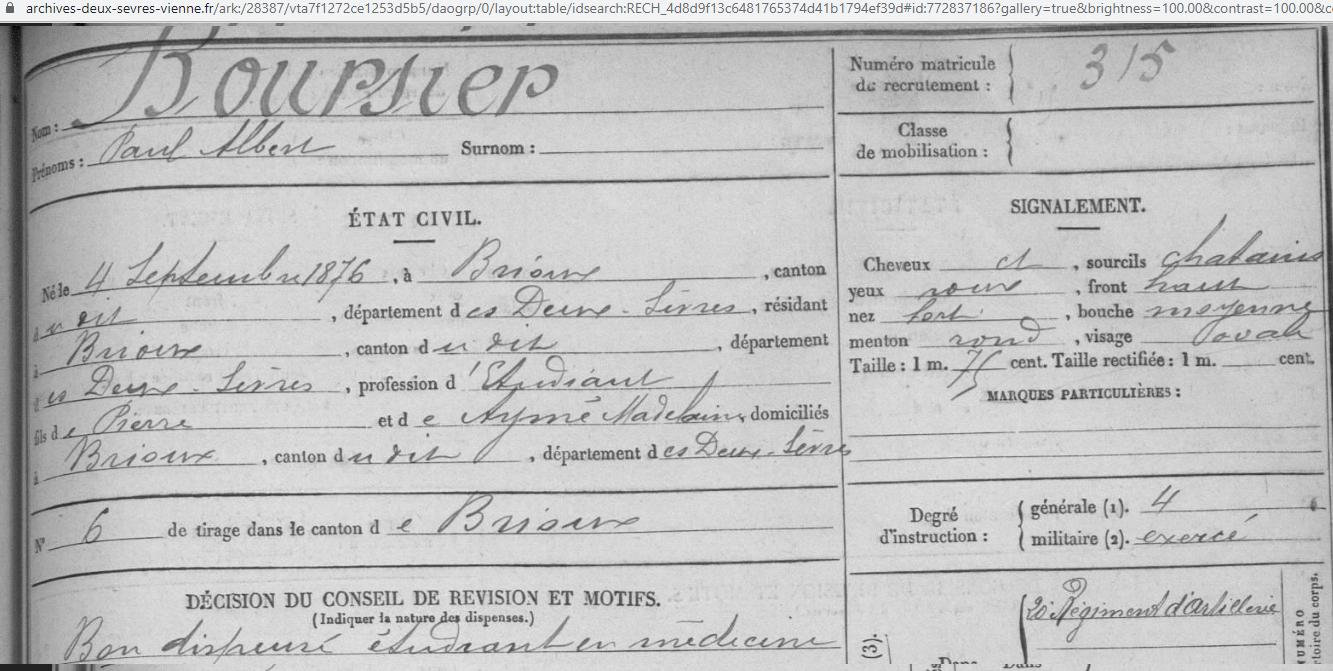 archives-deux-sevres-vienne.fr/ark:/28387/vta7f1272ce1253d5b5/daogrp/0/layout:table/idsearch:RECH_4d8d9f13c6481765374d41b1794ef39d#id:772837186?gallery=true&brightness=100.00&contrast=100.00&c
Nom : Boursier
Prénoms : Paul Albert Surnom :
ÉTAT CIVIL.
Né le 4 Septembre 1876, à Brioux, canton
dudit, département des Deux-Sèvres, résidant
à Brioux, canton dudit, département
des Deux-Sèvres, profession d'Etudiant
fils de Pierre et de Aymé Madelaine, domiciliés
à Brioux, canton dudit, département des Deux-Sèvres
N° 6 de tirage dans le canton de Brioux
DÉCISION DU CONSEIL DE REVISION ET MOTIFS.
(Indiquer la nature des dispenses.)
Bon dispensé étudiant en médecine
Numéro matricule
de recrutement : 315
Classe
de mobilisation :
SIGNALEMENT.
Cheveux et, sourcils chatains
yeux roux, front haut
nez fort, bouche moyenne
menton rond, visage ovale
Taille : 1 m. 75 cent. Taille rectifiée : 1 m. cent.
MARQUES PARTICULIÈRES :
Degré
d'instruction :
générale (1). 4
militaire (2). exercé
20e Régiment d'artillerie
(3).
NUMÉRO
toire du corps.
Dans